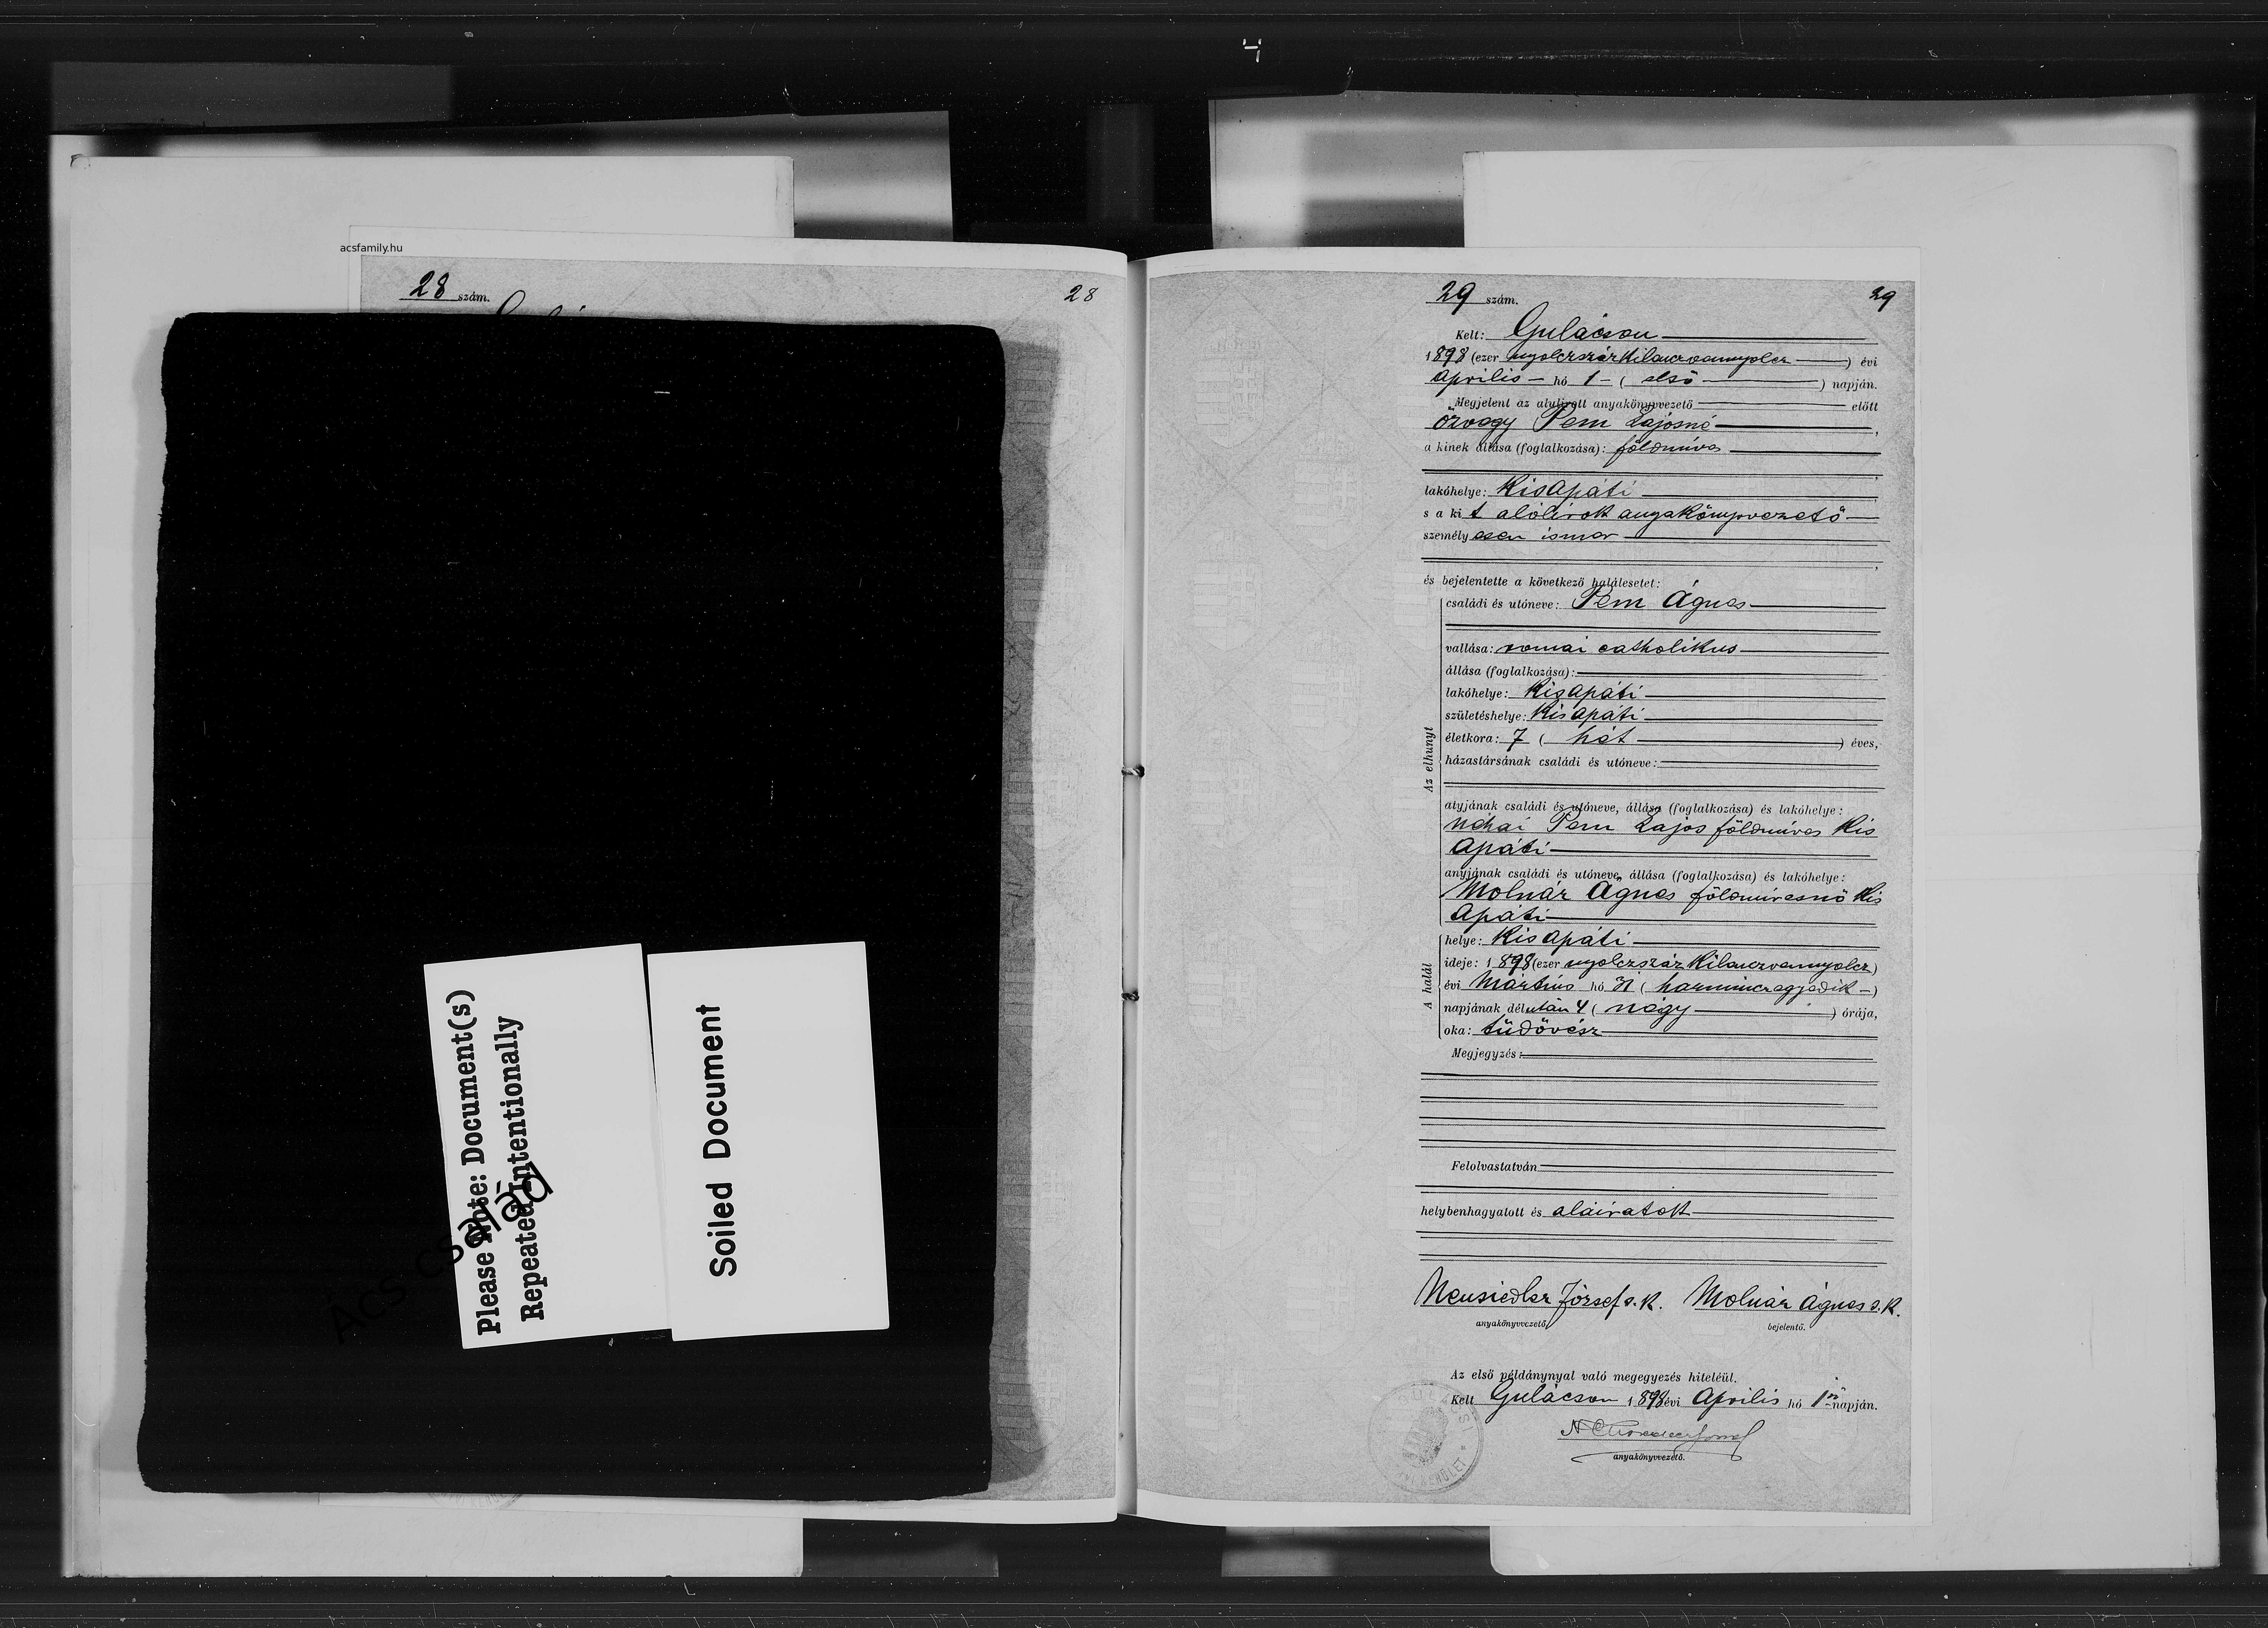 acsfamily.hu
28 szám.
28
Please Note: Document(s)
Repeated Intentionally
Soiled Document
Ács család
29 szám.
29
Kelt: Gulácson
1898 (ezer nyolczszázkilenczvennyolcz) évi
április hó 1 (első) napján.
Megjelent az alulirott anyakönyvvezető előtt
özvegy Pem Lajosné,
a kinek állása (foglalkozása): földmíves
lakóhelye: Kisapáti
s a kit alólirott anyakönyvvezető
személyesen ismer
és bejelentette a következő halálesetet:
Az elhunyt
családi és utóneve: Pem Ágnes
vallása: romai catholikus
állása (foglalkozása):
lakóhelye: Kisapáti
születéshelye: Kisapáti
életkora: 7 (hét) éves,
házastársának családi és utóneve:
atyjának családi és utóneve, állása (foglalkozása) és lakóhelye:
néhai Pem Lajos földmíves Kis
apáti
anyjának családi és utóneve, állása (foglalkozása) és lakóhelye:
Molnár Ágnes földmívesnő Kis
apáti
A halál
helye: Kisapáti
ideje: 1898 (ezer nyolczszáz kilenczvennyolcz)
évi Mártius hó 31 (harminczegyedik)
napjának délután 4 (négy) órája,
oka: tüdővész
Megjegyzés:
Felolvastatván
helybenhagyatott és aláiratott
Neusiedler József s. k. Molnár Ágnes s. k.
anyakönyvvezető bejelentő.
Az első példánynyal való megegyezés hiteléül.
Kelt Gulácson 1898 évi április hó 1 napján.
anyakönyvvezető.